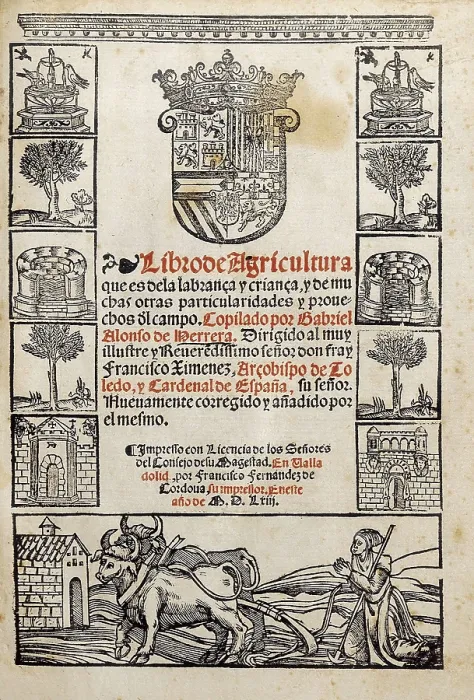 Libro de Agricultura
que es dela labrança y criança, y de mu
chas otras particularidades y proue-
chos dl campo. Copilado por Gabriel
Alonso de Herrera. Dirigido al muy
illustre y Reuerẽdissimo señor don fray
Francisco Ximenez, Arçobispo de To
ledo, y Cardenal de España, su señor.
Nueuamente corregido y añadido por
el mesmo.
¶Impresso con Licencia de los Señores
del Consejo de su Magestad. En Valla
dolid, por Francisco Fernandez de
Cordoua su impressor, En este
año de M. D. Lxiij.